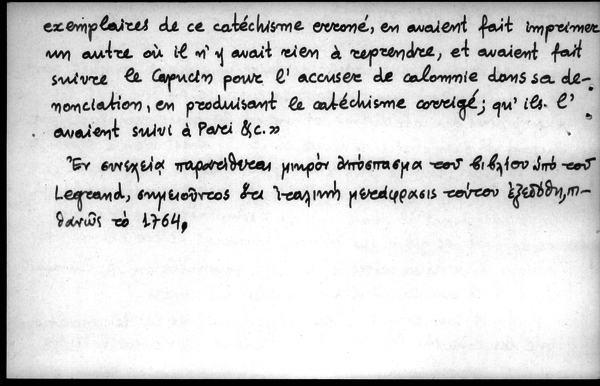 exemplaires de ce catéchisme erroné, en avaient fait imprimer
un autre où il n'y avait rien à reprendre, et avaient fait
suivre le Capucin pour l'accuser de calomnie dans sa de-
nonciation, en produisant le catéchisme corrigé; qu'ils l'
avaient suivi à Pari &c.»
Ἐν συνεχείᾳ παρατίθεται μικρὸν ἀπόσπασμα τοῦ βιβλίου ὑπὸ τοῦ
Legrand, σημειοῦντος ὅτι ἰταλικὴ μετάφρασις τούτου ἐξεδόθη, πι-
θανῶς τὸ 1764.